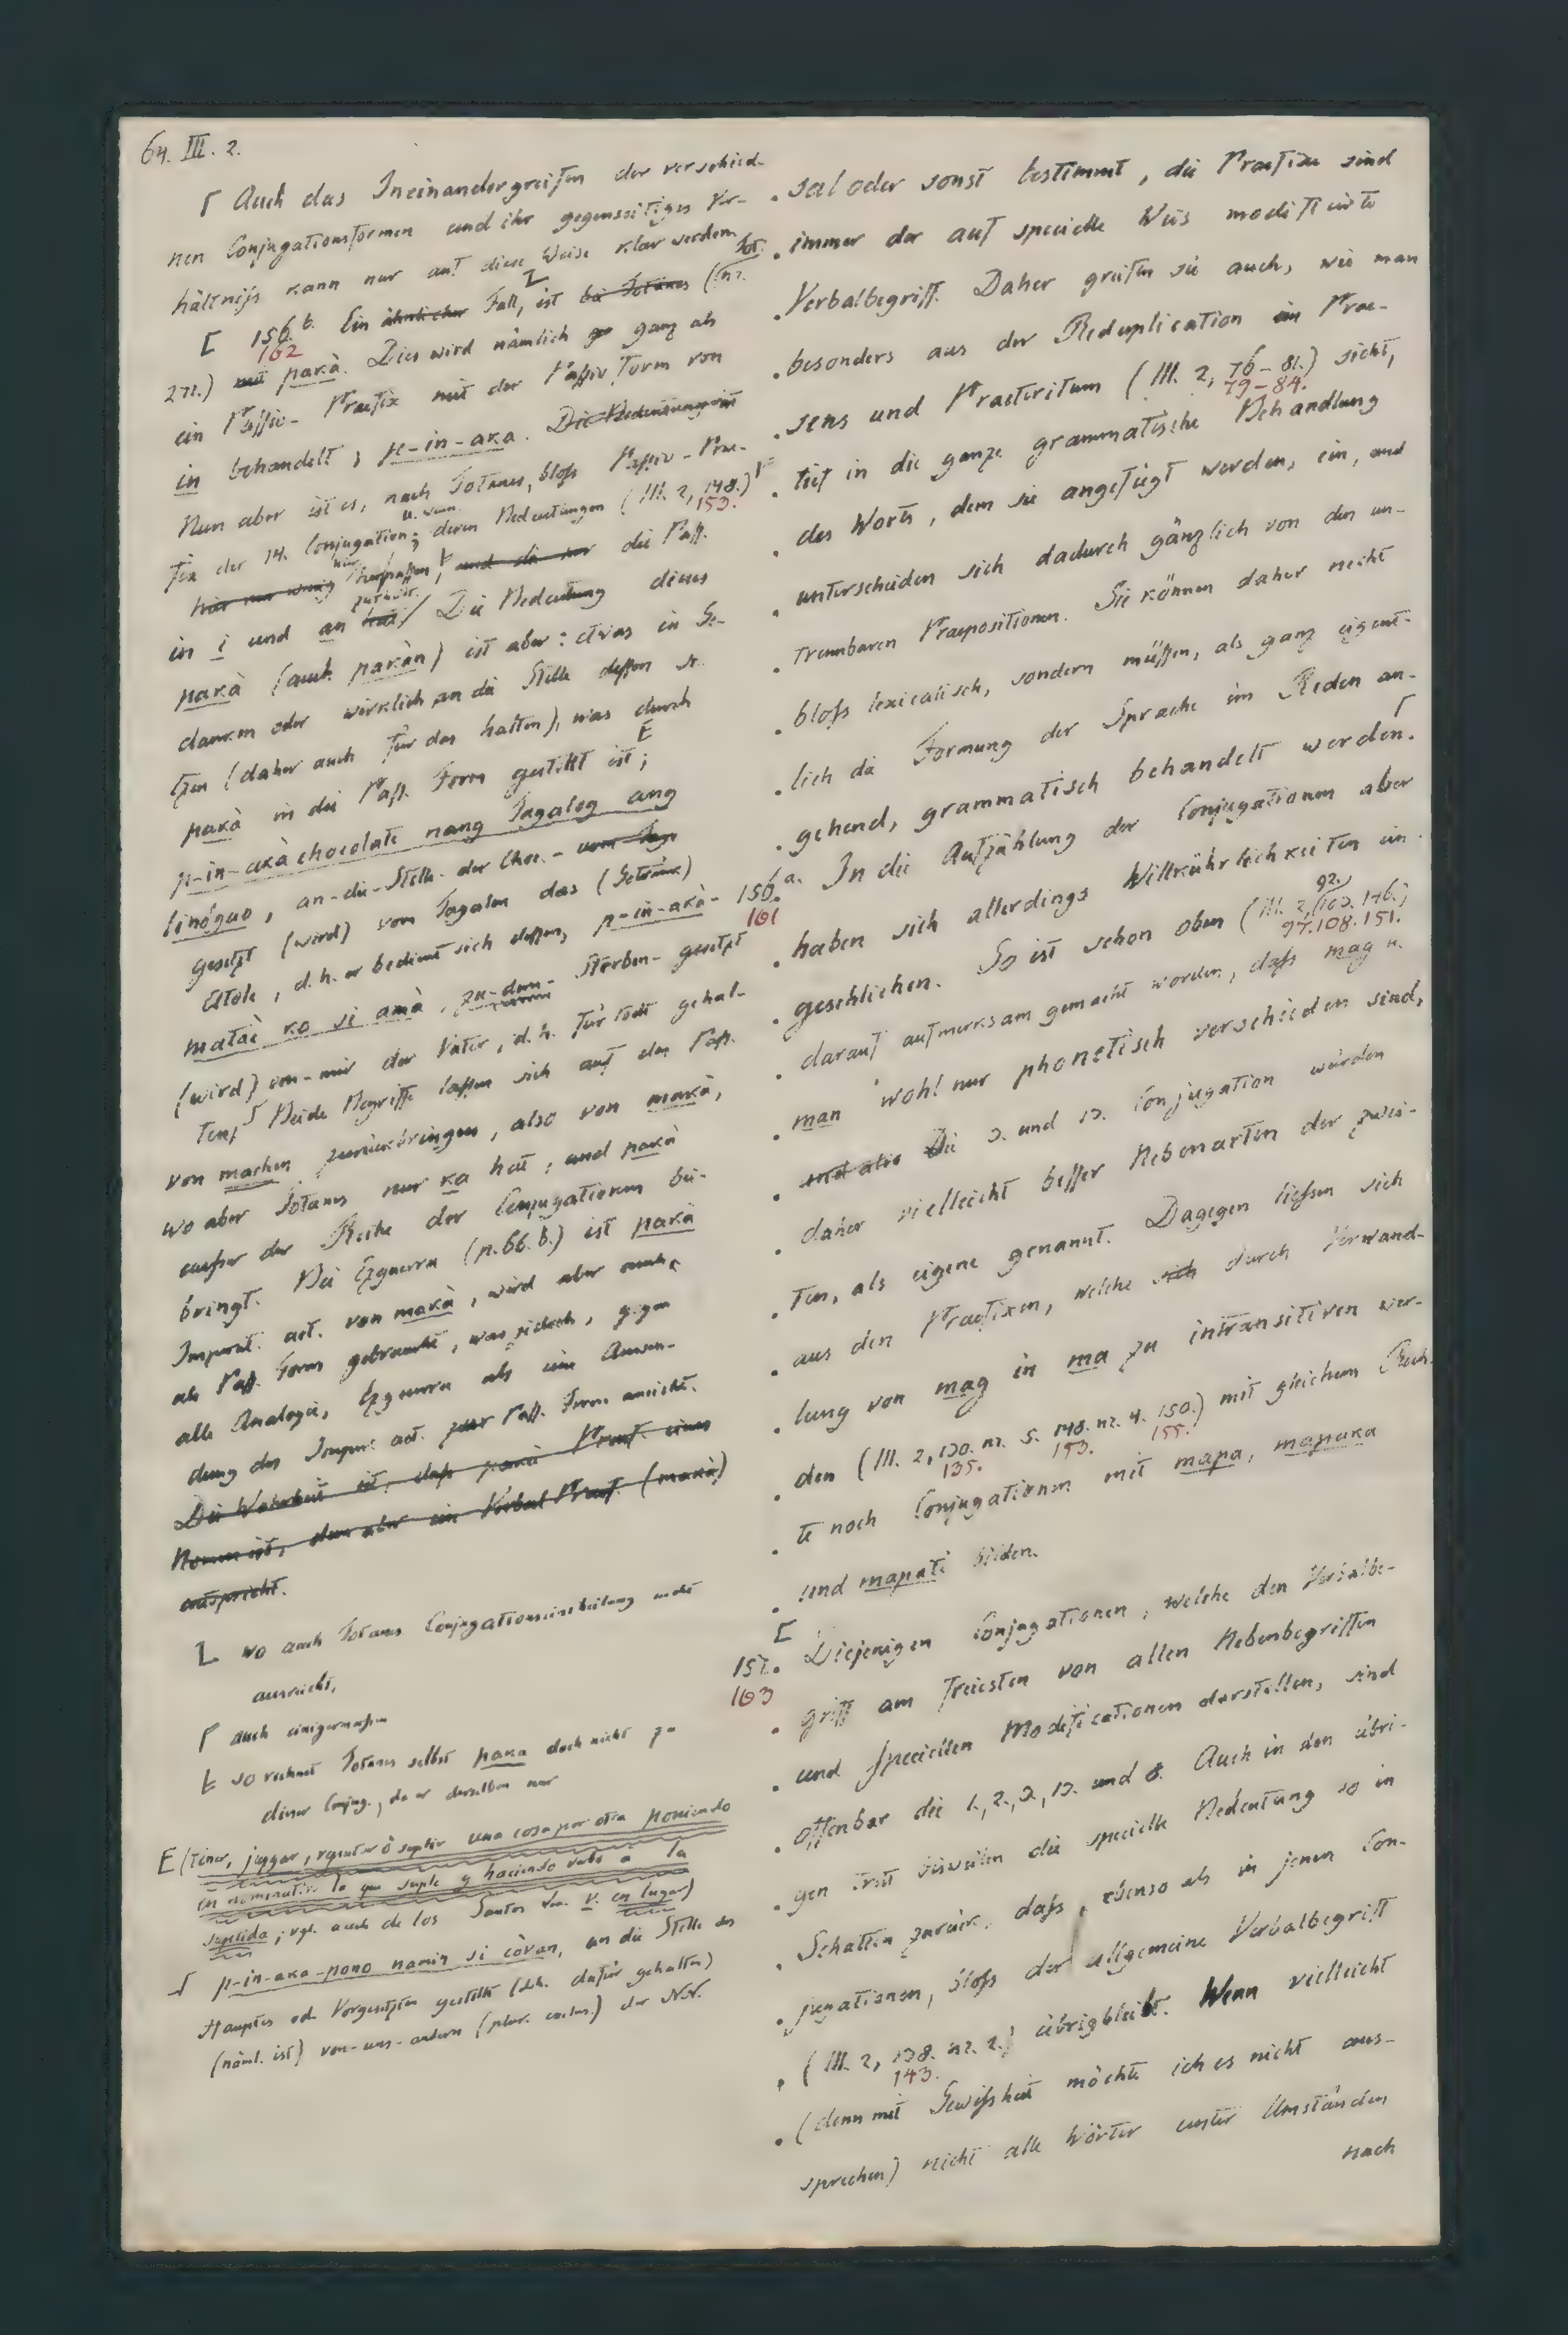 64. III. 2.
Γ Auch das Ineinandergreifen der verschied-
nen Conjugationsformen und ihr gegenseitiges Ver-
hältniſs kann nur auf diese Weise klar werden.
[ 156. b. Ein ähnlicher Fall, ist bei Totanes (Tot. nr.
162
271.) mit pakà. Dies wird nämlich ganz als
ein Paſſiv-Praefix mit der Paſſiv Form von
in behandelt, p-in-aka. Die Bedeutung ist
Nun aber ist es, nach Totanes, bloſs Paſſiv-Prae-
fix der 14. Conjugation; deren Bedeutungen (III. 2, 148.)
153.
hier nur wenig und die nur die Paſſ.
in i und an hat. Die Bedeutung dieses
pakà (auch pakàn) ist aber: etwas in Ge-
danken oder wirklich an die Stelle deſſen se-
tzen (daher auch für das halten), was durch
pakà in die Paſſ. Form gestellt ist; E
p-in-akà chocolate nang Tagalog ang
linógao, an-die-Stelle-der Choc.- vom Tag.
gesetzt (wird) vom Tagalen das (Getränk)
Atole, d. h. er bedient sich deſſen, p-in-akà-
matai ko si amà, zu-dem-Sterben-gesetzt
(wird) von-mir der Vater, d. h. für todt gehal-
ten. Beide Begriffe laſſen sich auf das Paſſ.
von machen zurückbringen, also von makà,
wo aber Totanes nur ka hat, und pakà
auſser der Reihe der Conjugationen bei-
bringt. Bei Ezguerra (p. 66. b.) ist pakà
Imperat. act. von makà, wird aber auch
als Paſſ. Form gebraucht, was jedoch, gegen
alle Analogie, Ezguerra als eine Anwen-
dung des Imper. act. zur Paſſ. Form ansieht.
Die Wahrheit ist, daſs pakà Praef. eines
Nomen ist, dem aber ein Verbal Praef. (makà)
entspricht.
L wo auch Totanes Conjugationseintheilung nicht
ausreicht,
Γ auch einigermaſsen
Ł so rechnet Totanes selbst paka doch nicht zu
dieser Conjug., da er derselben nur
E (tener, juzgar, reputar ò suplir una cosa por otra poniendo
en nominativo la que suple y haciendo verbo a la
suplida; vgl. auch de los Santos voc. v. en lugar)
p-in-aka-pono namin si còvan, an die Stelle des
Hauptes od. Vorgesetzten gestellt (d.h. dafür gehalten)
(näml. ist) von-uns-andern (plur. exclus.) der N.N.
sal oder sonst bestimmt, die Praefixe sind
immer der auf specielle Weis modificirte
Verbalbegriff. Daher greifen sie auch, wie man
besonders aus der Reduplication im Prae-
sens und Praeteritum (III. 2, 76-81.) sieht,
79-84.
tief in die ganze grammatische Behandlung
des Worts, dem sie angefügt werden, ein, und
unterscheiden sich dadurch gänzlich von den un-
trennbaren Praepositionen. Sie können daher nicht
bloſs lexicalisch, sondern müſſen, als ganz eigent-
lich die Formung der Sprache im Reden an-
gehend, grammatisch behandelt werden. Γ
156. a. In die Aufzählung der Conjugationen aber
161
haben sich allerdings Willkührlichkeiten ein-
geschlichen. So ist schon oben (III. 2, 92. 103. 146.)
97. 108. 151.
darauf aufmerksam gemacht worden, daſs mag u.
man wohl nur phonetisch verschieden sind,
und also Die 3. und 13. Conjugation würden
daher vielleicht beſſer Nebenarten der zwei-
ten, als eigene genannt. Dagegen lieſsen sich
aus den Praefixen, welche sich durch Verwand-
lung von mag in ma zu intransitiven wer-
den (III. 2, 130. nr. 5. 148. nr. 4. 150.) mit gleichem Rech-
135. 153. 155.
te noch Conjugationen mit mapa, mapaka
und mapati bilden.
[
157. Diejenigen Conjugationen, welche den Verbalbe-
163
griff am freiesten von allen Nebenbegriffen
und speciellen Modificationen darstellen, sind
offenbar die 1., 2., 3., 13. und 8. Auch in den übri-
gen tritt bisweilen die specielle Bedeutung so in
Schatten zurück, daſs, ebenso als in jenen Con-
jugationen, bloſs der allgemeine Verbalbegriff
(III. 2, 138. nr. 2.) übrigbleibt. Wenn vielleicht
143.
(denn mit Gewiſsheit möchte ich es nicht aus-
sprechen) nicht alle Wörter unter Umständen
nach